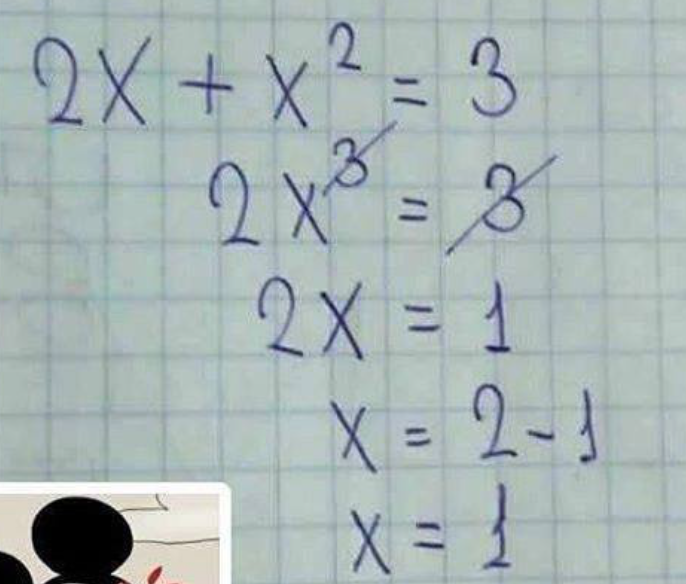 2x + x² = 3
2x³ = 3
2x = 1
x = 2 - 1
x = 1